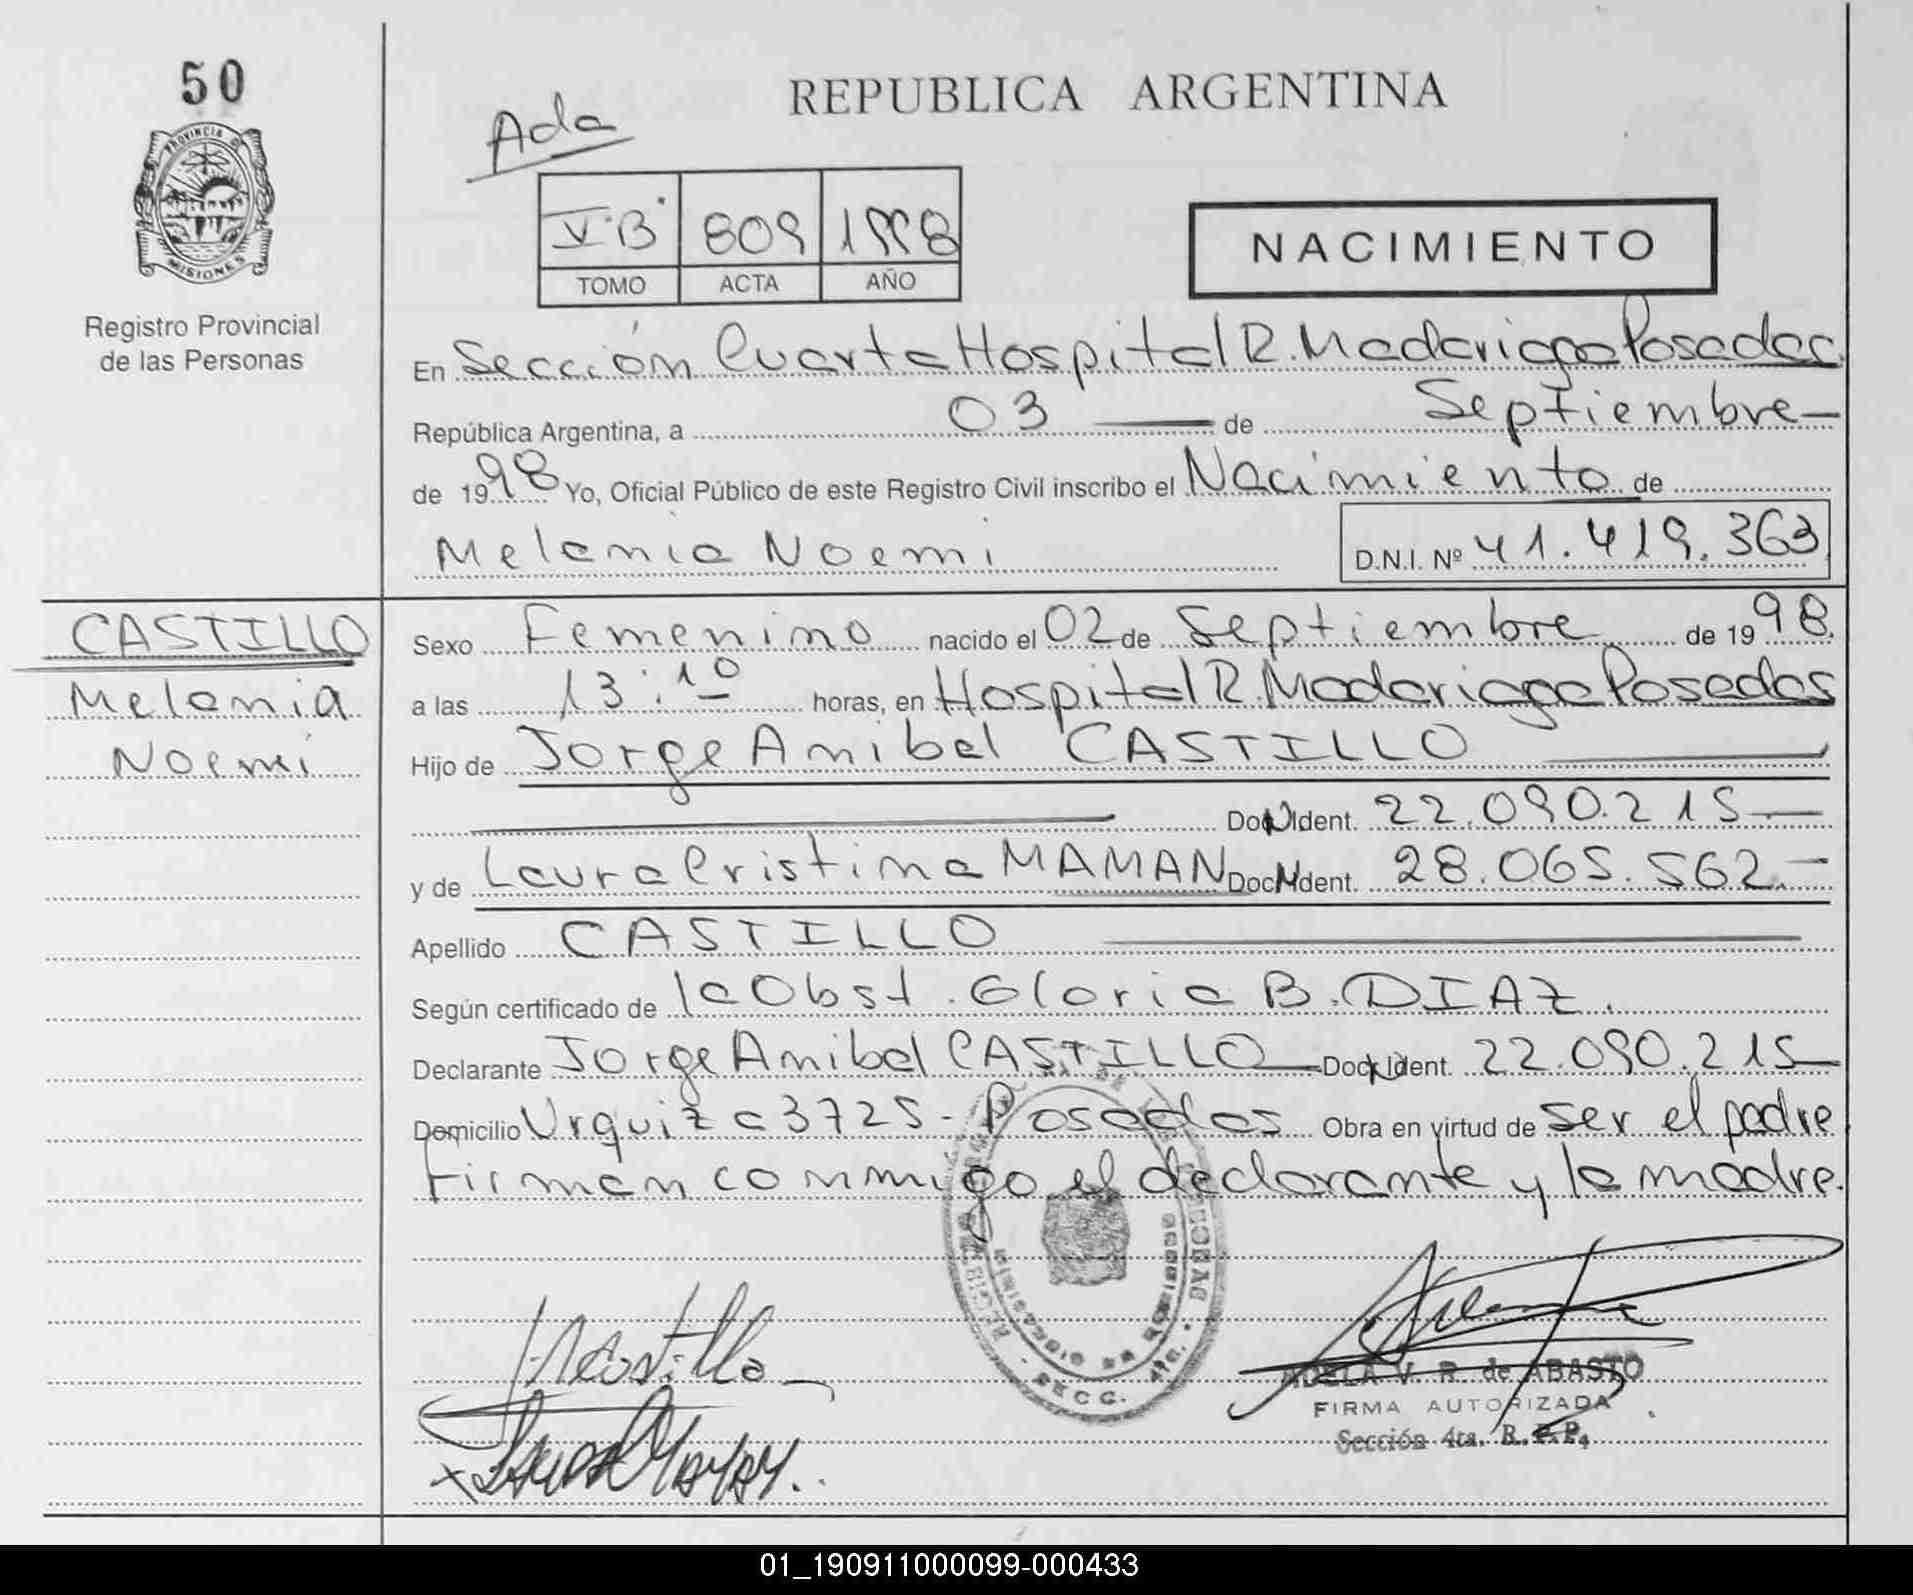 50
REPUBLICA ARGENTINA
Ada
PROVINCIA D
MISIONES
V"B" 809 1998
TOMO ACTA AÑO
NACIMIENTO
Registro Provincial
de las Personas
En Sección Cuarta Hospital R. Madariaga Posadas
República Argentina, a 03 de Septiembre
de 1998 Yo, Oficial Público de este Registro Civil inscribo el Nacimiento de
Melania Noemi D.N.I. Nº 41.419.363
CASTILLO
Melania
Noemi
Sexo Femenino nacido el 02 de Septiembre de 1998.
a las 13:10 horas, en Hospital R. Madariaga Posadas
Hijo de Jorge Anibal CASTILLO
Doc. Ident. 22.090.215.-
y de Laura Cristina MAMAN Doc. Ident. 28.065.562.-
Apellido CASTILLO
Según certificado de la Obst. Gloria B. DIAZ.
Declarante Jorge Anibal CASTILLO Doc. Ident. 22.090.215
Domicilio Urquiza 3725 - Posadas Obra en virtud de ser el padre
Firman conmigo el declarante y la madre.
SECC. 4ta.
ADELA V. R. de ABASTO
FIRMA AUTORIZADA
Sección 4ta. R. P. P.
01_190911000099-000433